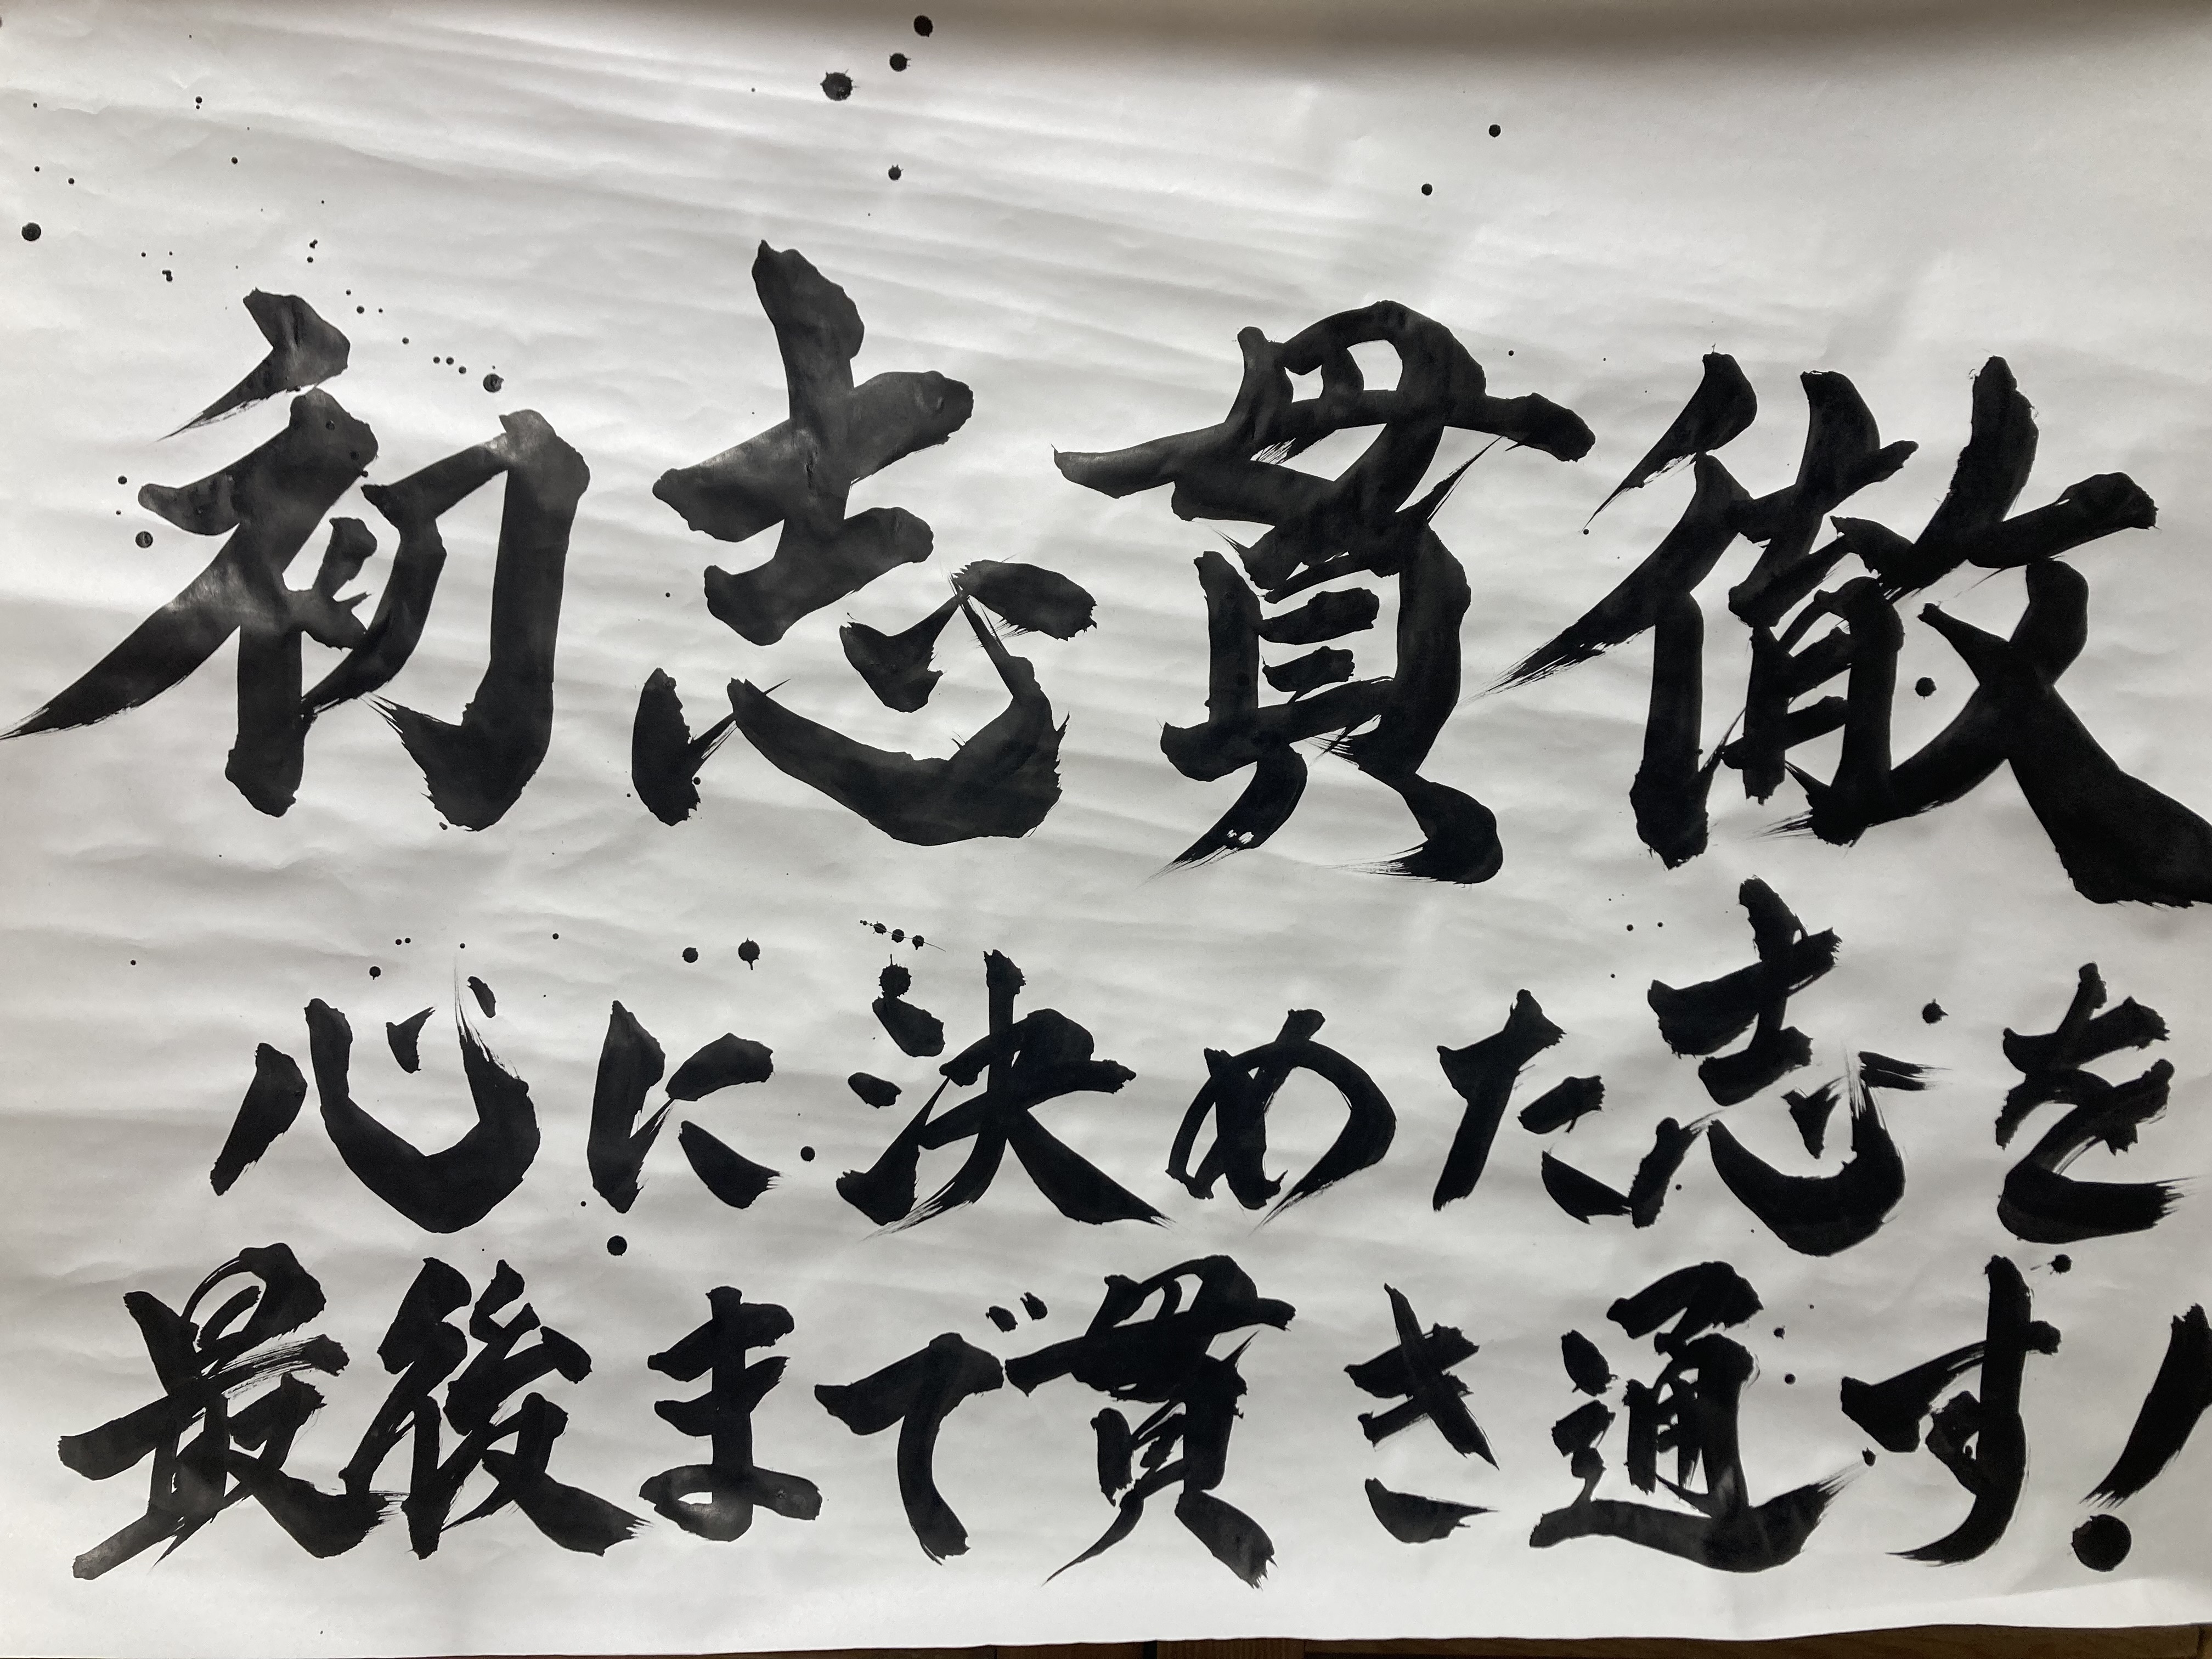 初志貫徹
心に決めた志を
最後まで貫き通す!